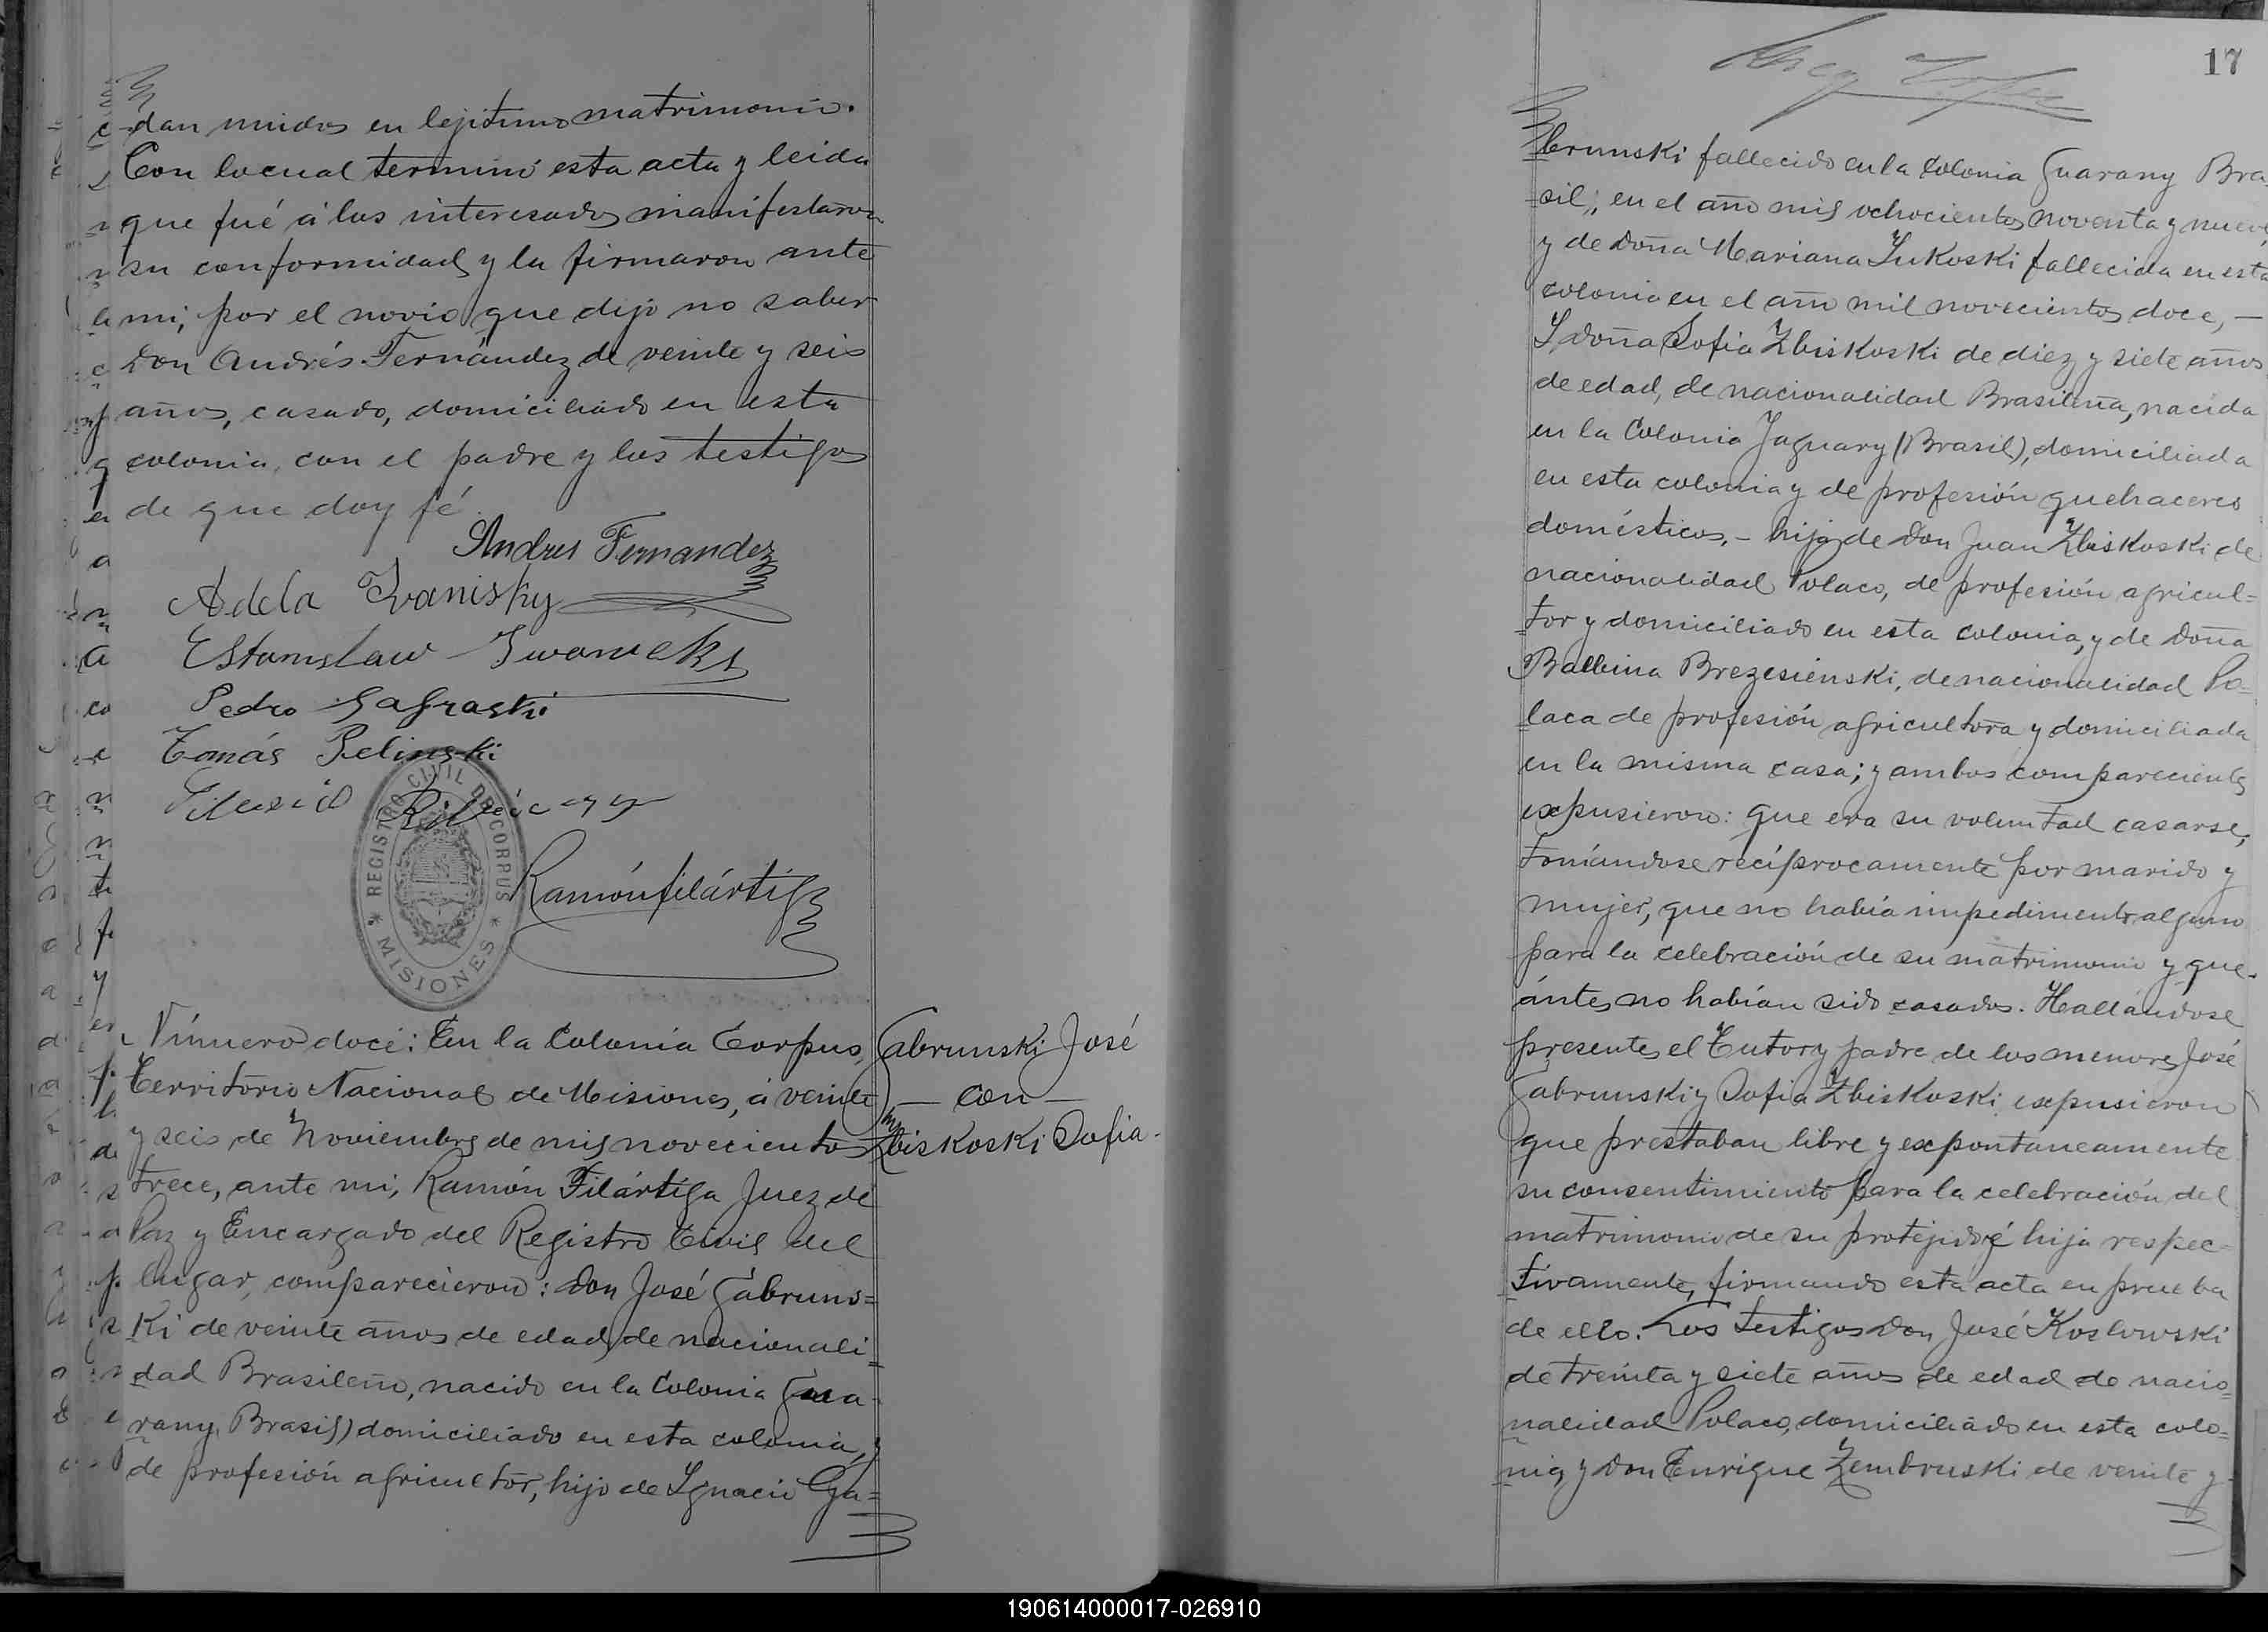 dan unidos en lejitimo matrimonio.
Con lo cual terminó esta acta y leida
que fué á los interesados manifestaron
su conformidad y la firmaron ante
mi; por el novio que dijo no saber
Don Andrés Fernández de veinte y seis
años, casado, domiciliado en esta
colonia, con el padre y los testigos
de que doy fé.
Andres Fernandez
Adela Ivanisky
Estanislaw
Pedro
Tomás Pelinski
REGISTRO CIVIL DE CORPUS
* MISIONES *
Ramón Filártiga
Número doce: En la Colonia Corpus,
Territorio Nacional de Misiones, á veinte
y seis de Noviembre de mil novecientos
trece, ante mi, Ramón Filártiga Juez de
Paz y Encargado del Registro Civil del
lugar, comparecieron: Don José Gabruns=
ki de veinte años de edad, de nacionali=
dad Brasileño, nacido en la Colonia Gua-
rany, Brasil) domiciliado en esta colonia, y
de profesión agricultor, hijo de Ignacio Ga=
Gabrunski José
— con —
Zbiskoski Sofia.
17
brunski fallecido en la Colonia Guarany Bra
sil, en el año mil ochocientos noventa y nueve,
y de Doña Mariana Lukoski fallecida en esta
colonia en el año mil novecientos doce, —
Y Doña Sofia Zbiskoski de diez y siete años
de edad, de nacionalidad Brasileña, nacida
en la Colonia Jaguary (Brasil), domiciliada
en esta colonia y de profesión quehaceres
domésticos, - hija de Don Juan Zbiskoski de
nacionalidad Polaco, de profesión agricul=
tor y domiciliado en esta colonia, y de Doña
Balbina Brezesienski, de nacionalidad Po=
laca de profesión agricultora y domiciliada
en la misma casa; y ambos comparecientes
expusieron: que era su voluntad casarse,
tomándose recíprocamente por marido y
mujer, que no había impedimento alguno
para la celebración de su matrimonio y que
ántes no habían sido casados. Hallándose
presentes el Tutor y padre de los menores José
Gabrunski y Sofia Zbiskoski expusieron
que prestaban libre y expontaneamente
su consentimiento para la celebración del
matrimonio de su protejido é hija respec=
tivamente, firmando esta acta en prueba
de ello. Los testigos Don José Koslowski
de treinta y siete años de edad de nacio=
nalidad Polaco, domiciliado en esta colo=
nia, y Don Enrique Zembruski de veinte y
190614000017-026910